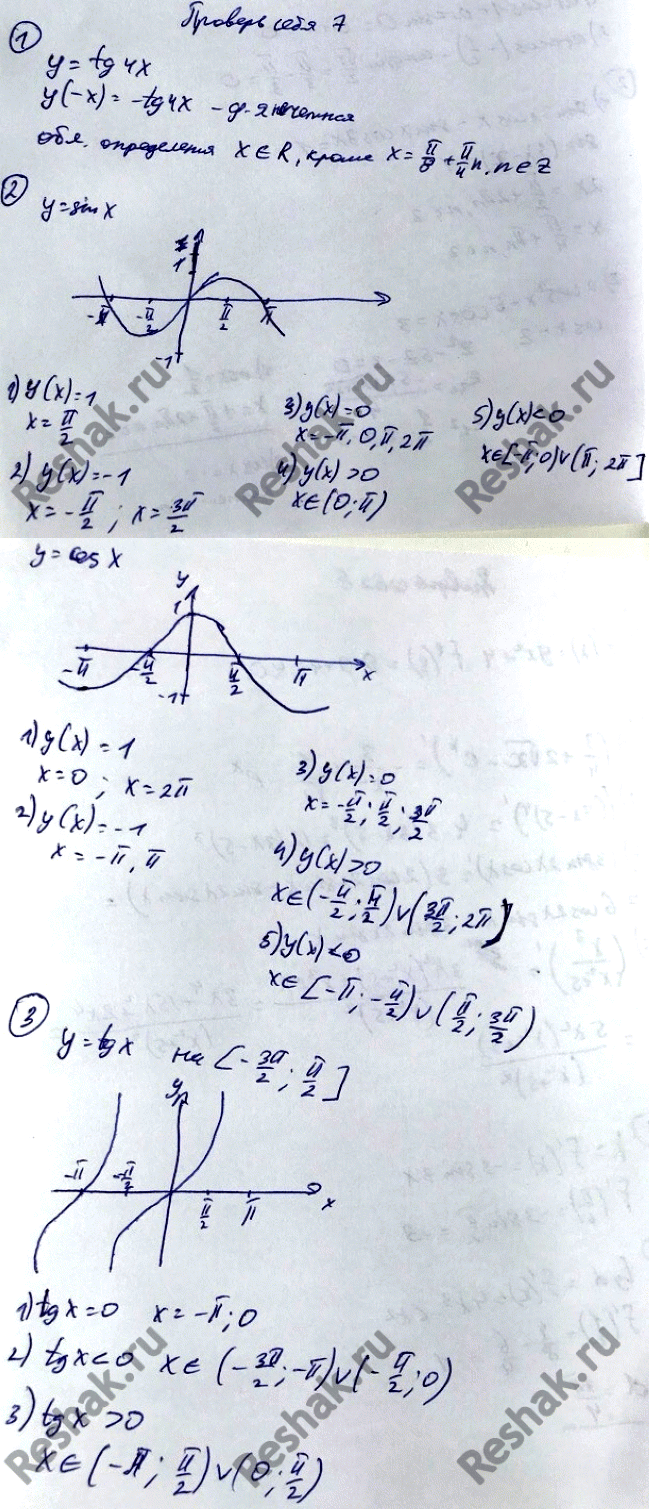 Проверь себя 7
①
y = tg 4x
y(-x) = -tg4x - ф-я нечетная
обл. определения x ∈ R, кроме x = π/8 + π/4 n, n ∈ Z
②
y = sin x
1
-π -π/2 π/2 π
-1
1) y(x) = 1
x = π/2
2) y(x) = -1
x = -π/2 ; x = 3π/2
3) y(x) = 0
x = -π, 0, π, 2π
4) y(x) > 0
x ∈ (0; π)
5) y(x) < 0
x ∈ [-π; 0) ∪ (π; 2π]
y = cos x
y
1
-π -π/2 π/2 π x
-1
1) y(x) = 1
x = 0 ; x = 2π
2) y(x) = -1
x = -π, π
3) y(x) = 0
x = -π/2 ; π/2 ; 3π/2
4) y(x) > 0
x ∈ (-π/2 ; π/2) ∪ (3π/2 ; 2π]
5) y(x) < 0
x ∈ [-π ; -π/2) ∪ (π/2 ; 3π/2)
③
y = tg x на [-3π/2 ; π/2]
y
-π -π/2 π/2 π x
1) tg x = 0 x = -π ; 0
2) tg x < 0 x ∈ (-3π/2 ; -π) ∪ (-π/2 ; 0)
3) tg x > 0
x ∈ (-π ; π/2) ∪ (0 ; π/2)
Reshak.ru
Reshak.ru
Reshak.ru
Reshak.ru
Reshak.ru
Reshak.ru